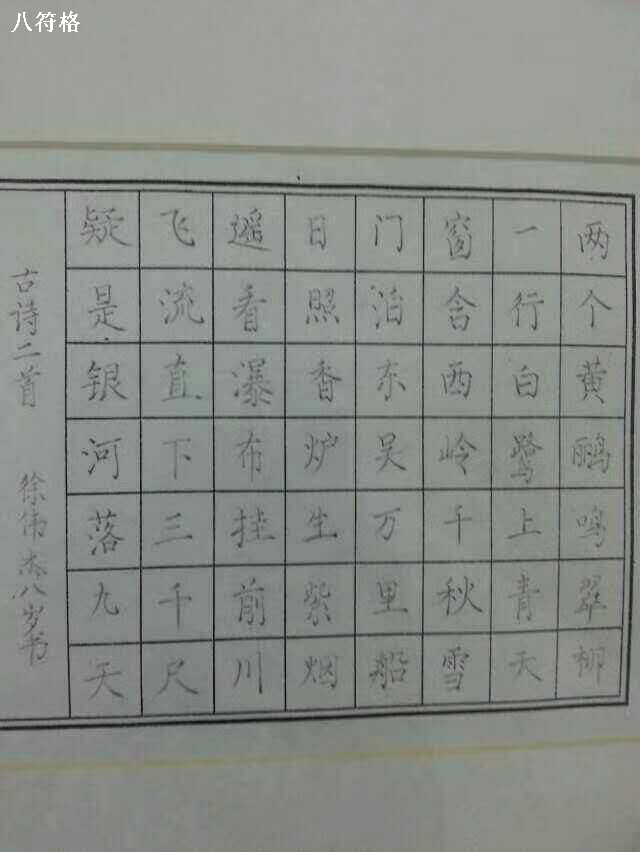 八符格
两个黄鹂鸣翠柳
一行白鹭上青天
窗含西岭千秋雪
门泊东吴万里船
日照香炉生紫烟
遥看瀑布挂前川
飞流直下三千尺
疑是银河落九天
古诗二首 徐伟杰八岁书